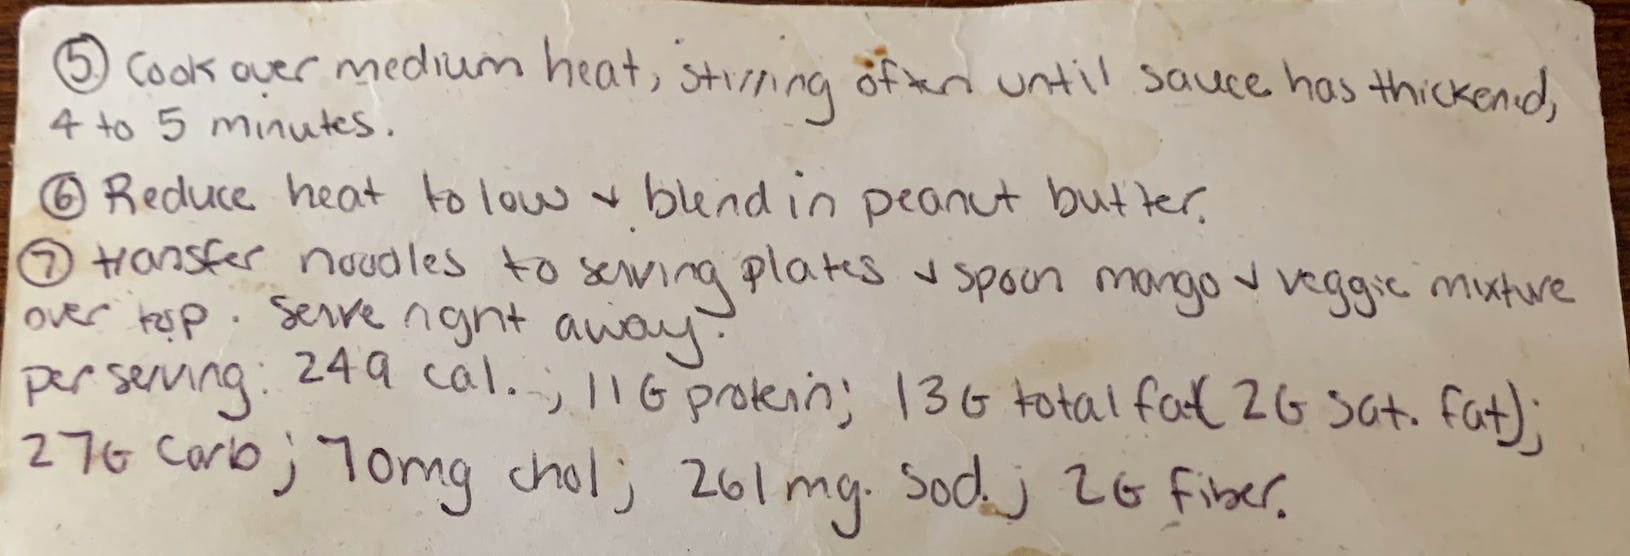 ⑤ Cook over medium heat, stirring often until sauce has thickened,
4 to 5 minutes.
⑥ Reduce heat to low & blend in peanut butter.
⑦ transfer noodles to serving plates & spoon mango & veggie mixture
over top. Serve right away.
per serving: 249 cal.; 11G protein; 13G total fat (2G sat. fat);
27G Carb; 70mg chol; 261mg. Sod.; 2G fiber.